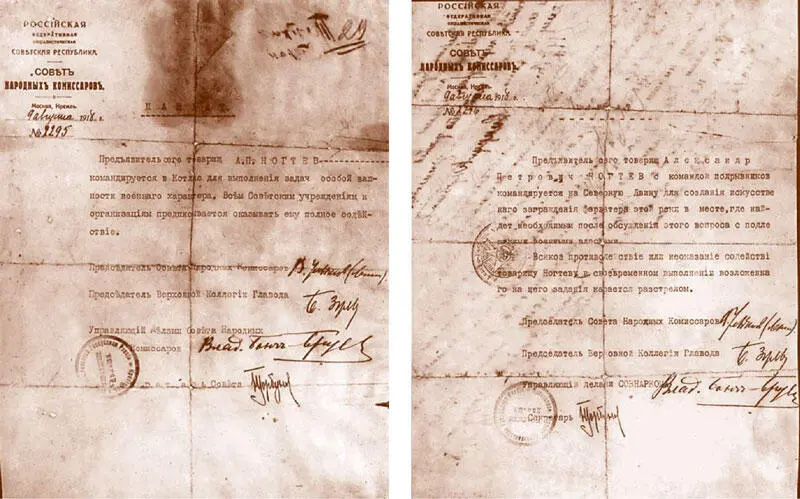 РОССІЙСКАЯ
ФЕДЕРАТИВНАЯ
СОЦІАЛИСТИЧЕСКАЯ
СОВѢТСКАЯ РЕСПУБЛИКА.
СОВѢТЪ
НАРОДНЫХЪ КОМИССАРОВЪ.
Москва, Кремль.
9 августа 1918 г.
№ 2295
29
Предъявитель сего товарищ А.П. НОГТЕВ
командируется в Котлас для выполнения задач особой важ-
ности военного характера. Всѣм Совѣтским учреждениям и
организациям предписывается оказывать ему полное содѣй-
ствие.
Предсѣдатель Совѣта Народных Комиссаров
Предсѣдатель Верховной Коллегіи Главода
Управляющий Дѣлами Совѣта Народных
Комиссаров Влад. Бонч-Бруевич
Совѣта Горбунов
РОССІЙСКАЯ
ФЕДЕРАТИВНАЯ
СОЦІАЛИСТИЧЕСКАЯ
СОВѢТСКАЯ РЕСПУБЛИКА.
СОВѢТЪ
НАРОДНЫХЪ КОМИССАРОВЪ.
Москва, Кремль.
9 августа 1918 г.
Предъявитель сего товарищ Александр
Петрович НОГТЕВ с командой подрывников
командируется на Северную Двину для создания искусстве
наго заграждения фарватера этой реки в месте, где най-
дет необходимым после обсуждения этого вопроса с подле
Всякое противодействие или неоказание содействі
товарищу Ногтеву в своевременном выполнении возложенна
го на него задания карается разстрелом.
Председатель Совѣта Народных Комиссаров
Председатель Верховной Коллегіи Главода
Управляющій делами СОВНАРКОМА Влад. Бонч-Бруевич
Секретарь Горбунов